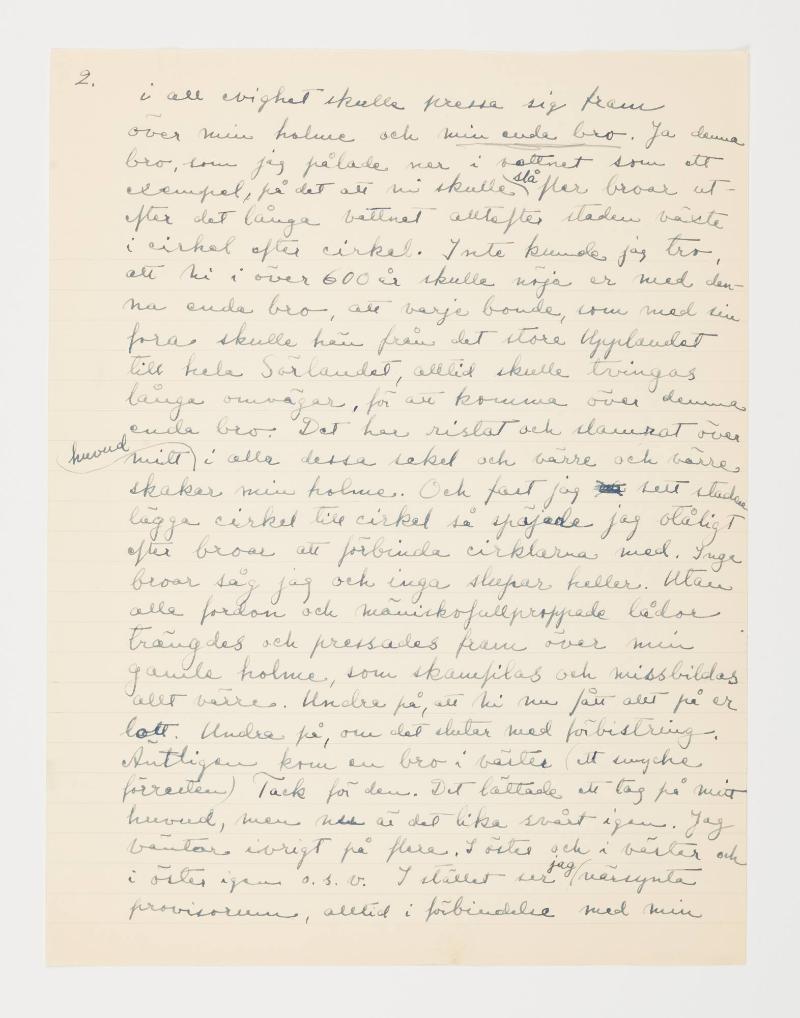 2.
i all evighet skulle pressa sig fram
över min holme och min enda bro. Ja denna
bro, som jag pålade ner i vattnet som ett
exempel, på det att ni skulle slå fler broar ut-
efter det långa vattnet alltefter staden växte
i cirkel efter cirkel. Inte kunde jag tro,
att ni i över 600 år skulle nöja er med den-
na enda bro, att varje bonde, som med sin
fora skulle hän från det stora Upplandet
till hela Sörlandet, alltid skulle tvingas
långa omvägar, för att komma över denna
enda bro. Det har rislat och slamrat över
mitt huvud i alla dessa sekel och värre och värre
skakar min holme. Och fast jag sett staden
lägga cirkel till cirkel så spejade jag otåligt
efter broar att förbinda cirklarna med. Inga
broar såg jag och inga slupar heller. Utan
alla fordon och mäniskofullproppade lådor
trängdes och pressades fram över min
gamle holme, som skamfilas och missbildas
allt värre. Undra på, att ni nu fått allt på er
lott. Undra på, om det slutar med förbistring.
Äntligen kom en bro i väster (ett smycke
förresten) Tack för den. Det lättade ett tag på mitt
huvud, men nu är det lika svårt igen. Jag
väntar ivrigt på flera. I öster och i väster och
i öster igen o.s.v. I stället ser jag närsynta
provisorium, alltid i förbindelse med min